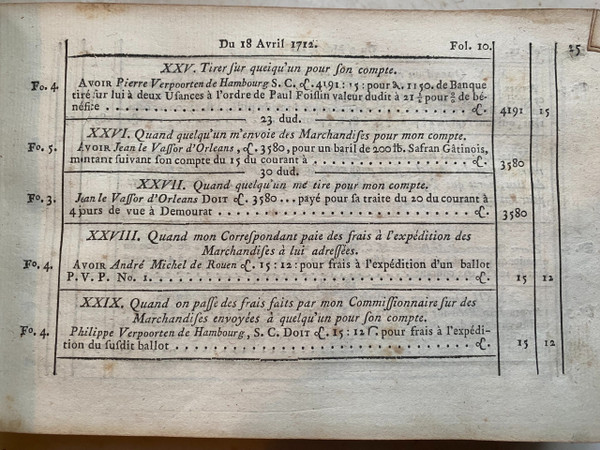 Du 18 Avril 1712. Fol. 10.
25
XXV. Tirer ſur quelqu'un pour ſon compte.
Fo. 4. AVOIR Pierre Verpoorten de Hambourg S. C. ₶. 4191 : 15 : pour 1150. de Banque
tiré ſur lui à deux Uſances à l'ordre de Paul Foiſſin valeur dudit à 21 pour de bé-
néfice ₶. 4191 15
23 dud.
XXVI. Quand quelqu'un m'envoie des Marchandiſes pour mon compte.
Fo. 5. AVOIR Jean le Vaſſor d'Orleans, ₶. 3580, pour un baril de 200 lb. Safran Gâtinois,
montant ſuivant ſon compte du 15 du courant à ₶. 3580
30 dud.
XXVII. Quand quelqu'un me tire pour mon compte.
Fo. 3. Jean le Vaſſor d'Orleans DOIT ₶. 3580... payé pour ſa traite du 20 du courant à
4 jours de vue à Demourat ₶. 3580
XXVIII. Quand mon Correſpondant paie des frais à l'expédition des
Marchandiſes à lui adreſſées.
Fo. 4. AVOIR André Michel de Rouen ₶. 15 : 12 : pour frais à l'expédition d'un ballot
P. V. P. No. 1. ₶. 15 12
XXIX. Quand on paſſe des frais faits par mon Commiſſionnaire ſur des
Marchandiſes envoyées à quelqu'un pour ſon compte.
Fo. 4. Philippe Verpoorten de Hambourg, S. C. DOIT ₶. 15 : 12 ſ. pour frais à l'expédi-
tion du ſuſdit ballot ₶. 15 12